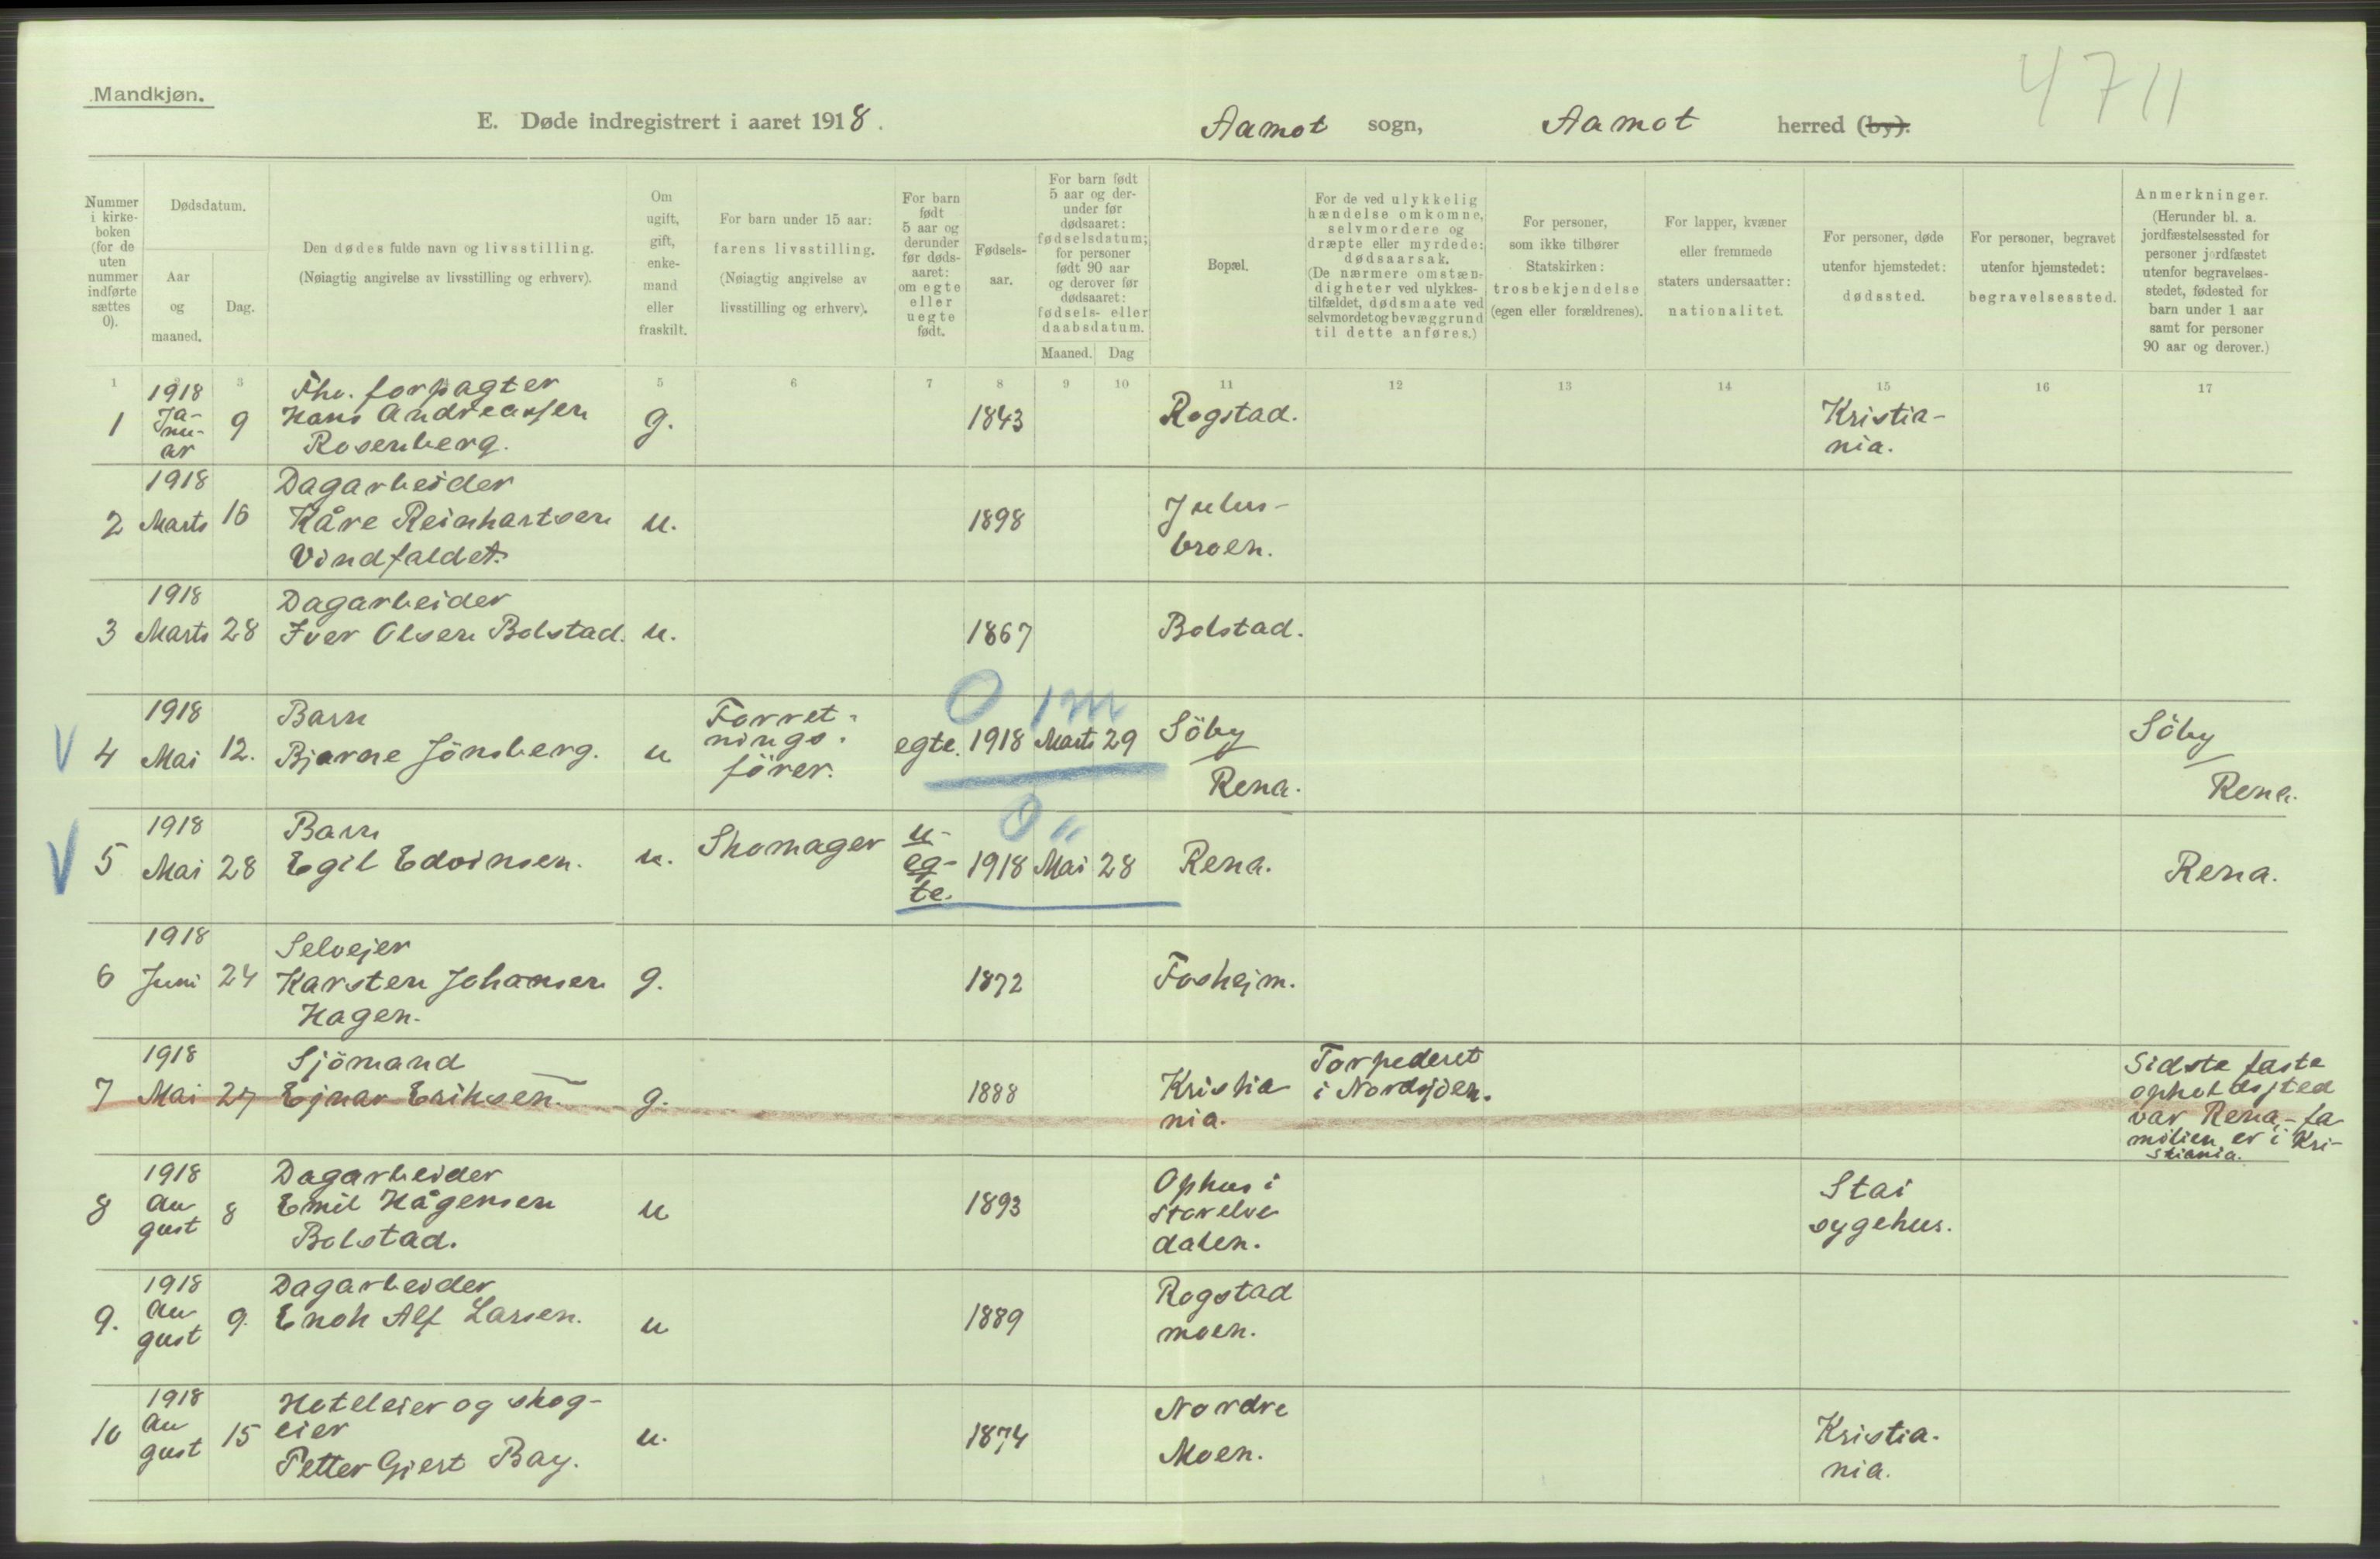 Mandkjøn.
4711
E. Døde indregistrert i aaret 1918.
Aamot sogn, Aamot herred (by).
Nummer i kirke-boken (for de uten nummer indførte sættes 0).
Dødsdatum.
Aar og maaned.
Dag.
Den dødes fulde navn og livsstilling.
(Nøiagtig angivelse av livsstilling og erhverv).
Om ugift, gift, enke-mand eller fraskilt.
For barn under 15 aar:
farens livsstilling.
(Nøiagtig angivelse av livsstilling og erhverv).
For barn født 5 aar og derunder før døds-aaret: om egte eller uegte født.
Fødsels-aar.
For barn født 5 aar og der-under før dødsaaret: fødselsdatum; for personer født 90 aar og derover før dødsaaret: fødsels- eller daabsdatum.
Maaned. Dag
Bopæl.
For de ved ulykkelig hændelse omkomne, selvmordere og dræpte eller myrdede: dødsaarsak.
(De nærmere omstæn-digheter ved ulykkes-tilfældet, dødsmaate ved selvmordet og bevæggrund til dette anføres.)
For personer, som ikke tilhører Statskirken: trosbekjendelse (egen eller forældrenes).
For lapper, kvæner eller fremmede staters undersaatter: nationalitet.
For personer, døde utenfor hjemstedet: dødssted.
For personer, begravet utenfor hjemstedet: begravelsessted.
Anmerkninger.
(Herunder bl. a. jordfæstelsessted for personer jordfæstet utenfor begravelses-stedet, fødested for barn under 1 aar samt for personer 90 aar og derover.)
1 2 3 5 6 7 8 9 10 11 12 13 14 15 16 17
1 1918 Ja-nu-ar 9 Fhv. forpagter Hans Andreassen Rosenberg. g. 1843 Rogstad. Kristia-nia.
2 1918 Marts 16 Dagarbeider Kåre Reinhartsen Vindfaldet. u. 1898 Julus-broen.
3 1918 Marts 28 Dagarbeider Iver Olsen Bolstad. u. 1867 Bolstad.
0 1m
V 4 1918 Mai 12. Barn Bjarne Jönsberg. u Forret-nings-förer. egte. 1918 Marts 29 Söby Rena. Söby Rena.
0 "
V 5 1918 Mai 28 Barn Egil Edvinsen. u. Skomager u-eg-te. 1918 Mai 28 Rena. Rena.
6 1918 Juni 24 Selvejer Karsten Johansen Hagen. g. 1872 Fosheim.
7 1918 Mai 27 Sjömand Ejnar Eriksen. g. 1888 Kristia nia. Torpederet i Nordsjöen. Sidste faste opholdssted var Rena, - fa milien er i Kri-stiania.
8 1918 Au gust 8 Dagarbeider Emil Hågensen Bolstad. u 1893 Ophus i Storelve dalen. Stai sygehus.
9. 1918 Au gust 9. Dagarbeider Enok Alf Larsen. u 1889 Rogstad moen.
10 1918 Au gust 15 Hoteleier og skog-eier Petter Gjert Bay. u. 1874 Nordre Moen. Kristia-nia.